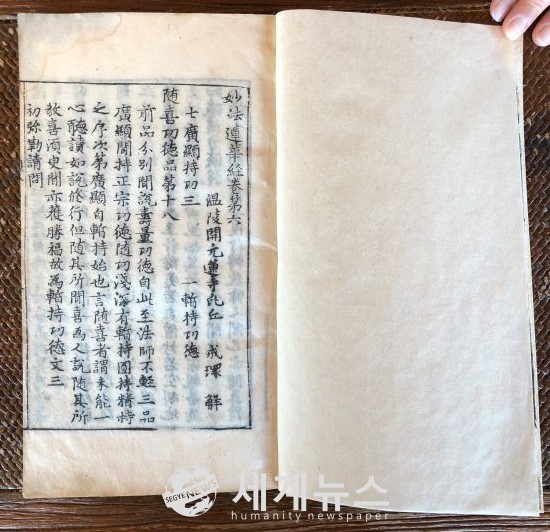 妙法蓮華経巻第六
温陵開元蓮寺比丘 戒環 解
七廣顯持功三
隨喜功德品第十八 一暫持功德
前品分別聞說壽量功德自此至法師不輕三品
廣顯聞持正宗功德隨功淺深有暫持圓持精持
之序次第廣顯自暫持始也言隨喜者謂未能一
心聽讀如說修行但隨其所聞喜為人說隨其所
故喜須臾聞亦獲勝福故為暫持功德文三
初弥勒請問
SEGYE NEWS
세계뉴스
humanity newspaper